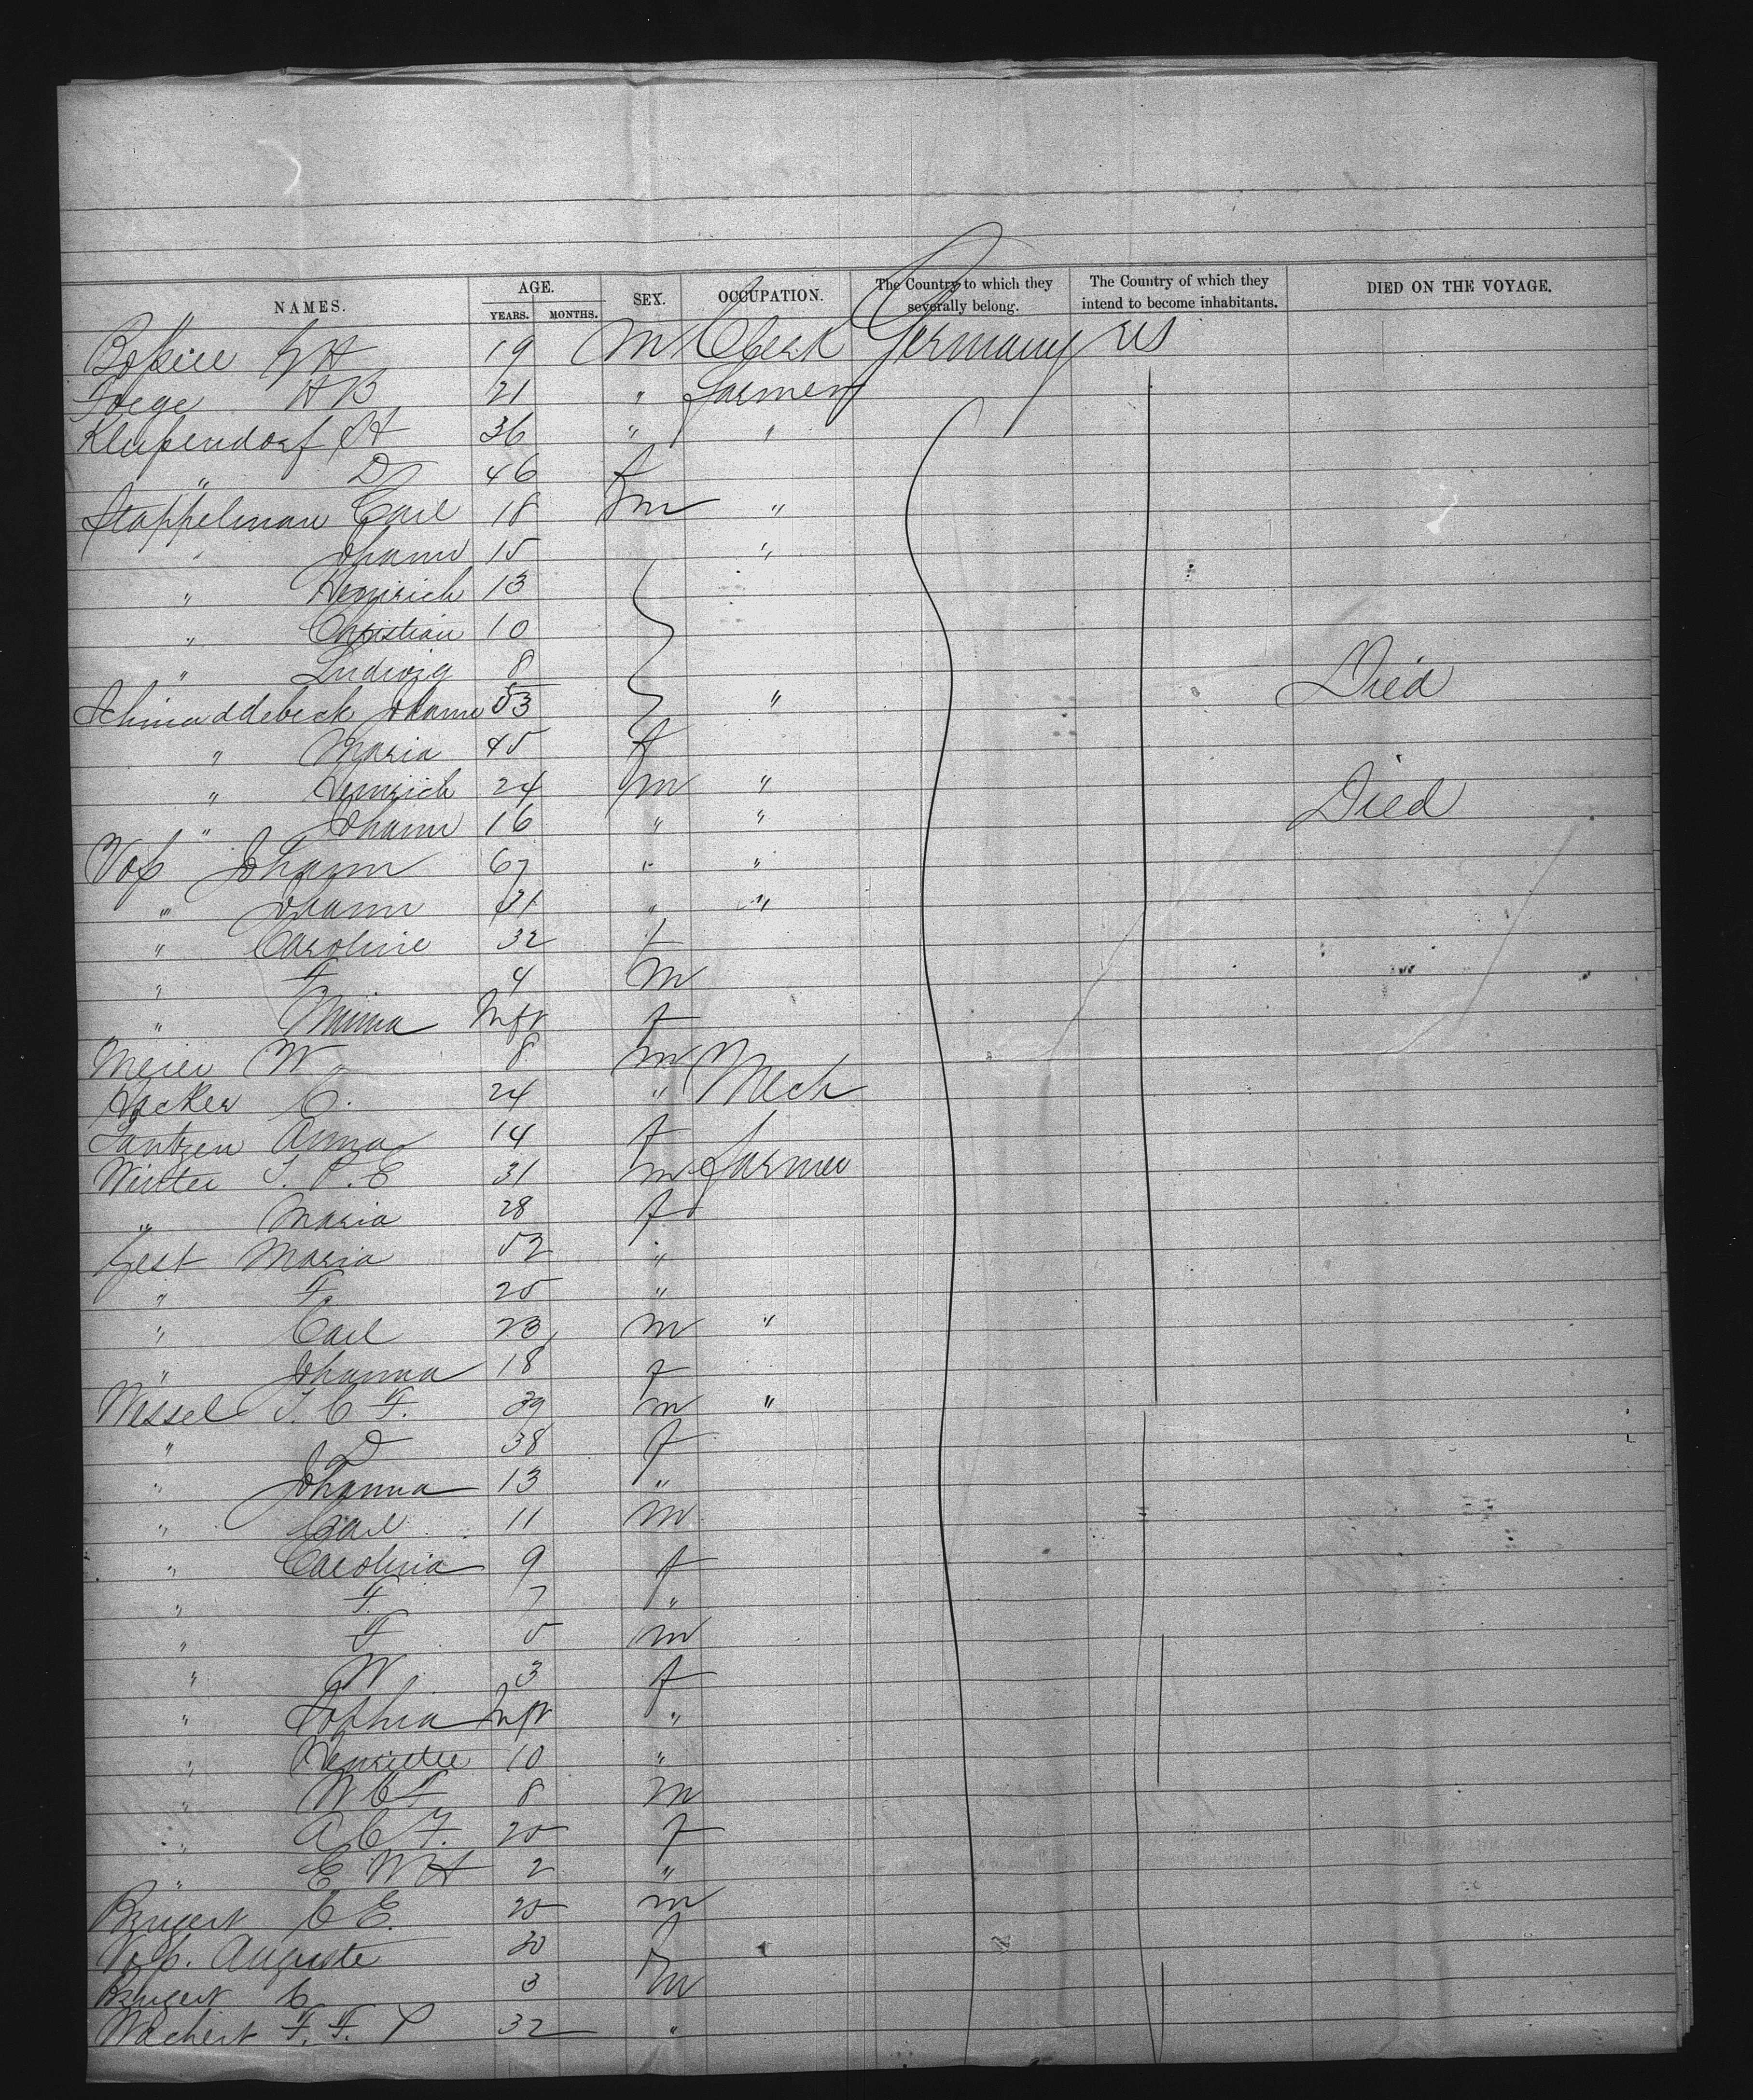 NAMES. AGE. YEARS. MONTHS. SEX. OCCUPATION. The Country to which they severally belong. The Country of which they intend to become inhabitants. DIED ON THE VOYAGE.
H 19 M Clerk Germany US
H B 21 " farmer
H 36 " "
" D 46 f
Stappelman Carl 18 m "
" Johann 15 "
" Heinrich 13
" Christian 10
" Ludwig 8 Died
Johann 53 "
" Maria 45 f
" Heinrich 24 m " Died
" Johann 16 " "
Voß Johann 67 " "
" Johann 31 " "
" Caroline 32 f
" F 4 m
" Minna Inft f
Meier W 8 m
Hacker C. 24 " Mech
Jantzen Anna 14 f
Winter J. P. E 31 m farmer
" Maria 28 f
Maria 52 "
" F. 25 "
" Carl 23 m "
" Johanna 18 f
Wessel J. C F. 39 m "
" D 38 f
" Johanna 13 "
" Carl 11 m
" Carolina 9 f
" F. 7 "
" F 5 m
" W. 3 f
" Sophia Inft "
" Henriette 10 "
" W C F 8 m
" A C F. 20 f
" E W H 2 "
C E. 20 m
Voß. Auguste 30 f
C 3 m
Wachert F. F. P 32 "